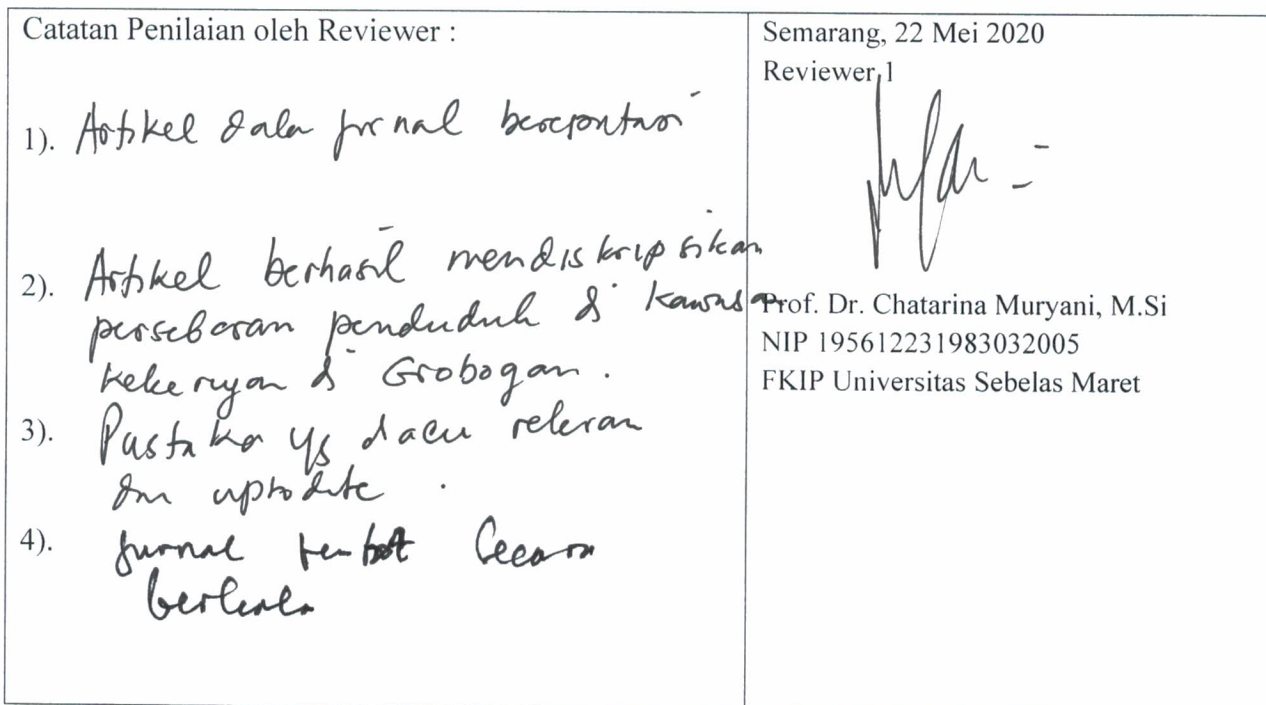 Catatan Penilaian oleh Reviewer :
1). Artikel dala jurnal bereputasi
2). Artikel berhasil mendiskripsikan
persebaran penduduk di kawasa
kekeringan di Grobogan.
3). Pustaka yg diacu relevan
dan uptodate .
4). Jurnal terbit secara
berkala
Semarang, 22 Mei 2020
Reviewer 1
Prof. Dr. Chatarina Muryani, M.Si
NIP 195612231983032005
FKIP Universitas Sebelas Maret